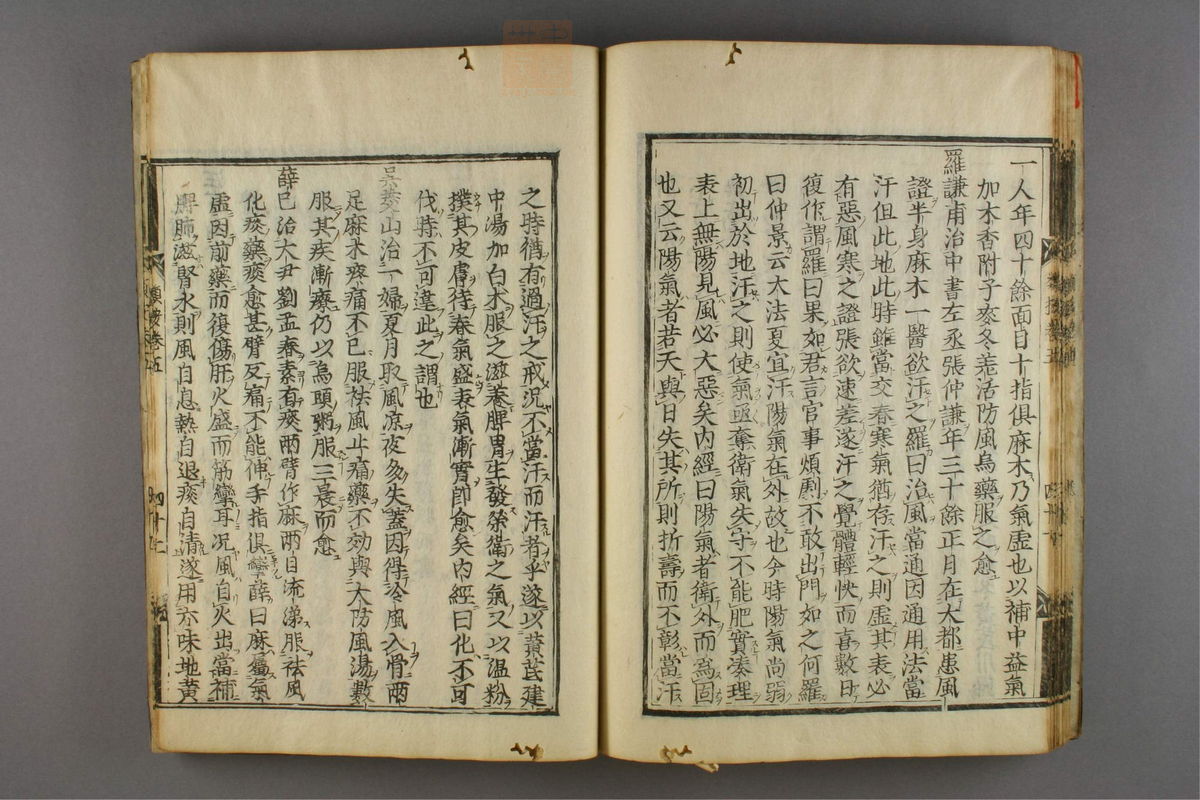 一人年四十餘面目十指俱麻木乃氣虛也以補中益氣
加木香附子麥冬羗活防風烏藥服之愈
羅謙甫治中書左丞張仲謙年三十餘正月在大都患風
證半身麻木一醫欲汗之羅曰治風當通因通用法當
汗但此地此時雖當交春寒氣猶存汗之則虛其表必
有惡風寒之證張欲速差遂汗之覺體輕快而喜數日
復作謂羅曰果如君言官事煩劇不敢出門如之何羅
曰仲景云大法夏宜汗陽氣在外故也今時陽氣尚弱
初出於地汗之則使氣亟奪衛氣失守不能肥實湊理
表上無陽見風必大惡矣內經曰陽氣者衛外而爲固
也又云陽氣者若天與日失其所則折壽而不彰當汗
之時猶有過汗之戒況不當汗而汗者乎遂以黃芪建
中湯加白朮服之滋養脾胃生發榮衛之氣又以温粉
撲其皮膚待春氣盛表氣漸實即愈矣內經曰化不可
伐時不可違此之謂也
吳茭山治一婦夏月取風凉夜多失蓋因得冷風入骨兩
足麻木疼痛不已服袪風止痛藥不効與大防風湯數
服其疾漸瘳仍以烏頭粥服三晨而愈
薛已治大尹劉孟春素有痰兩臂作麻兩目流涕服祛風
化痰藥痰愈甚臂反痛不能伸手指俱攣薛曰麻屬氣
虛因前藥而復傷肝火盛而筋攣耳況風自火出當補
脾肺滋腎水則風自息熱自退痰自清遂用六味地黃
類按卷五